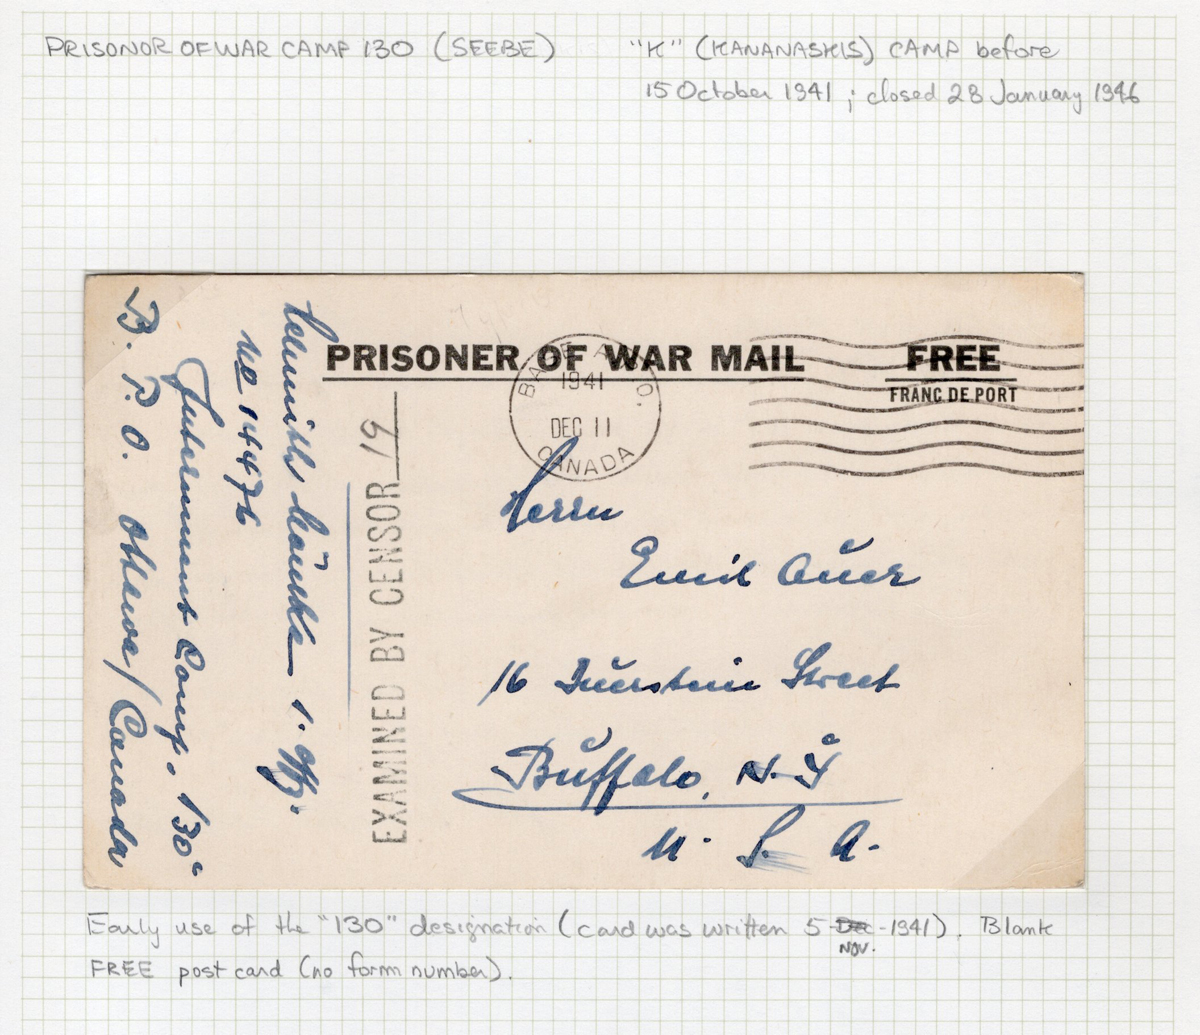 PRISONOR OF WAR CAMP 130 (SEEBE)
"K" (KANANASKIS) CAMP before
15 October 1941 ; closed 28 January 1946
PRISONER OF WAR MAIL
FREE
FRANC DE PORT
BASE A.P.O.
1941
DEC 11
CANADA
EXAMINED BY CENSOR 19
1. Offz.
No 14476
Internment Camp. 130
B. P. O. Ottawa / Canada
Herrn
Emil Auer
16 Duerstein Street
Buffalo, N.Y
U. S. A.
Early use of the "130" designation (card was written 5-Dec-1941). Blank
NOV.
FREE post card (no form number).